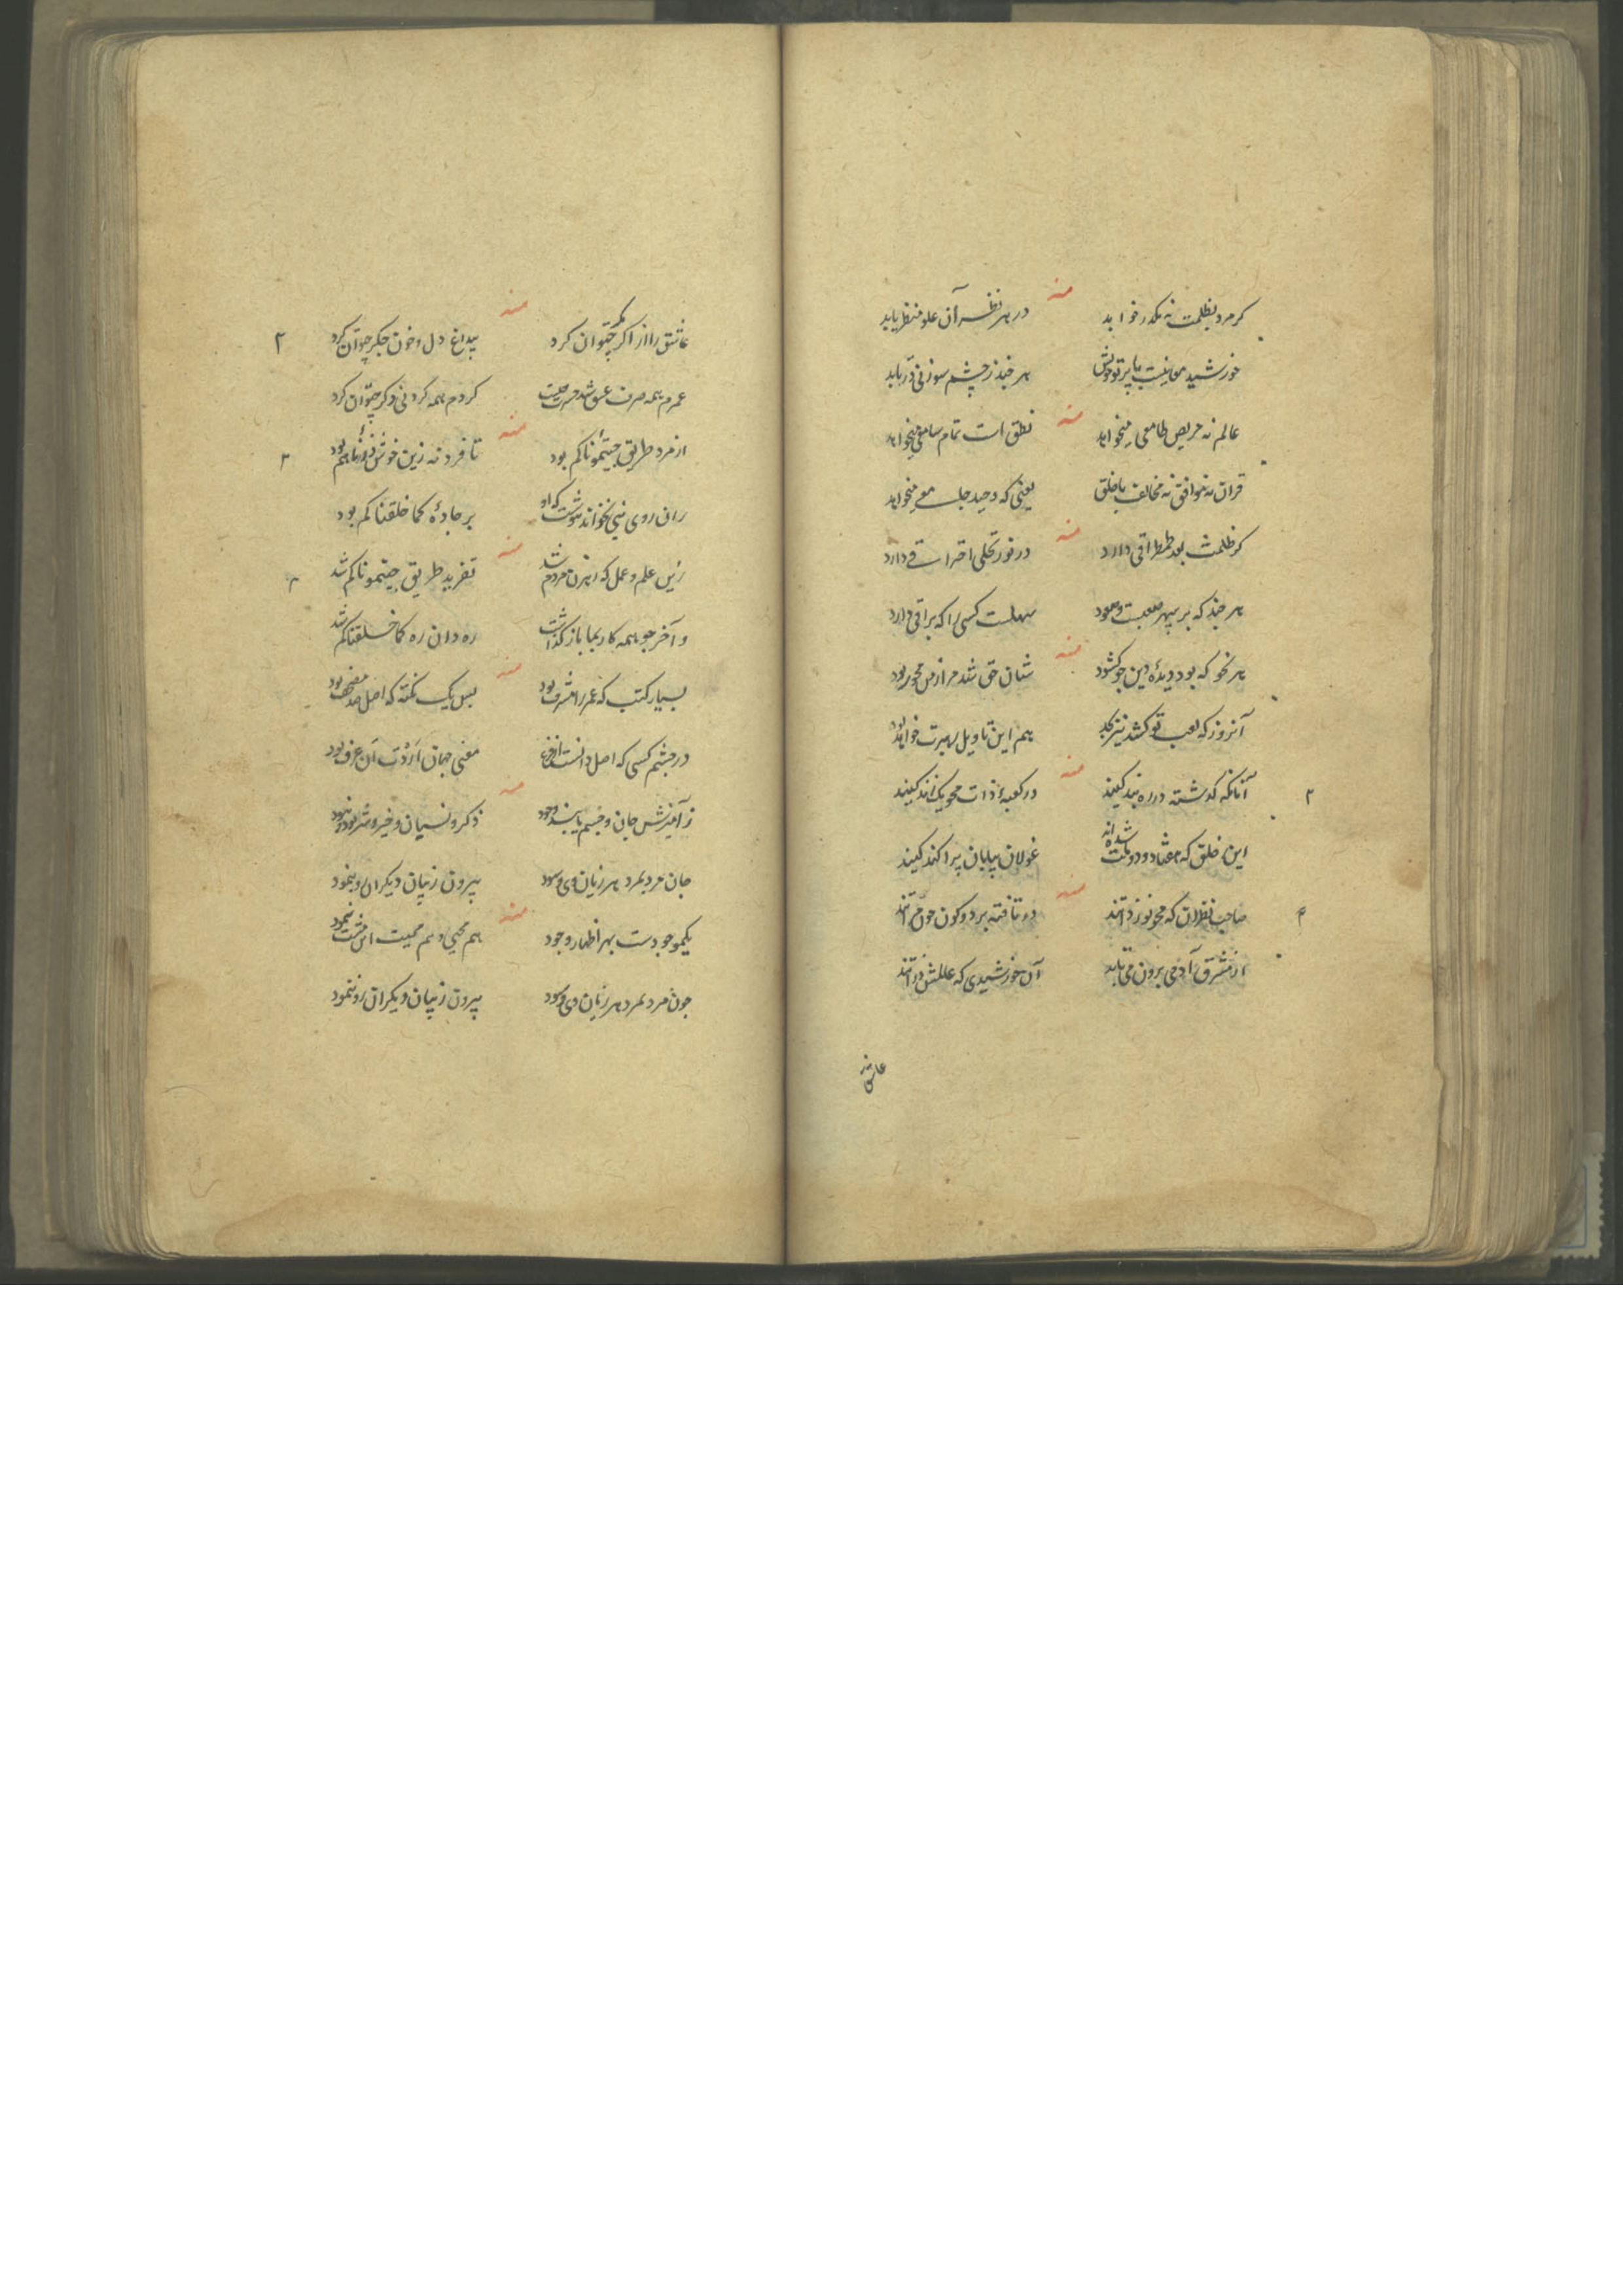 منه
کر مرد بظلمت نه مکدر خوابد در هر نظر آن علو منظر یابد
خورشید معانیست با پرتو خویش هر چند ز چشم سوزنی در یابد
منه
عالم نه حریص طامعی میخواهد نطق است تمام سامعی میخواهد
قران نه موافق نه مخالف با خلق یعنی که وحید جامعی میخواهد
منه
کر ظلمت بعد طمطراقی دارد در نور تجلی احتراقی دارد
هر چند که بر سپهر صعبست صعود سهلست کسی را که براقی دارد
منه
هر نحو که بود دیدۀ دین چو کشود شان حق شد مرا ز من محو ربود
آنروز که تو کشد هم این تاویل رهبرت خواهد بود
منه
آنانکه گذشته در ره بند کیند در کعبۀ ذات محو یک کیند
این خلق که هفتاد و دو ملت شده اند غولان بیابان پراکند کیند
منه
صاحب نظران که محو نور ذاتند در تافته بر دو کون چون مرآتند
از مشرق آدمی برون می تابد آن خورشیدی که عالمش ذراتند
عاشق
منه
عاشق را از اکر مکر چتوان کرد بیداغ دل و خون جکر چتوان کرد
عمرم همه صرف عشق شد حسرت چیست کردم همه کردنی دکر چتوان کرد
منه
از مرد طریق جئتمونا کم بود تا فرد نه زین خوش بود
زان روی نبی نخواند که او بر جادۀ کما خلقنا کم بود
منه
زین علم و عمل که رهزن مردم شد تفرید طریق جئتمونا کم شد
و آخر چو همه کار بما باز گذاشت ره دان ره کما خلقنا کم شد
منه
بسیار کتب که عمر را مشرف بود بس یک نکته که اصل صد مصحف بود
در چشم کسی که اصل دانست معنی جهان اردت ان اعرف بود
منه
ز آمیزش جان و جسم یابند وجود ذکر و نسیان و خیر و شر بود و نبود
جان مرد بمرد هر زیان وی و سود بیرون ز بیان دیکران رو بنمود
منه
یکموجودست بهر اظهار وجود هم محیی و هم ممیت
چون مرد بمرد هر زیان وی و سود بیرون ز بیان دیکران رو ننمود